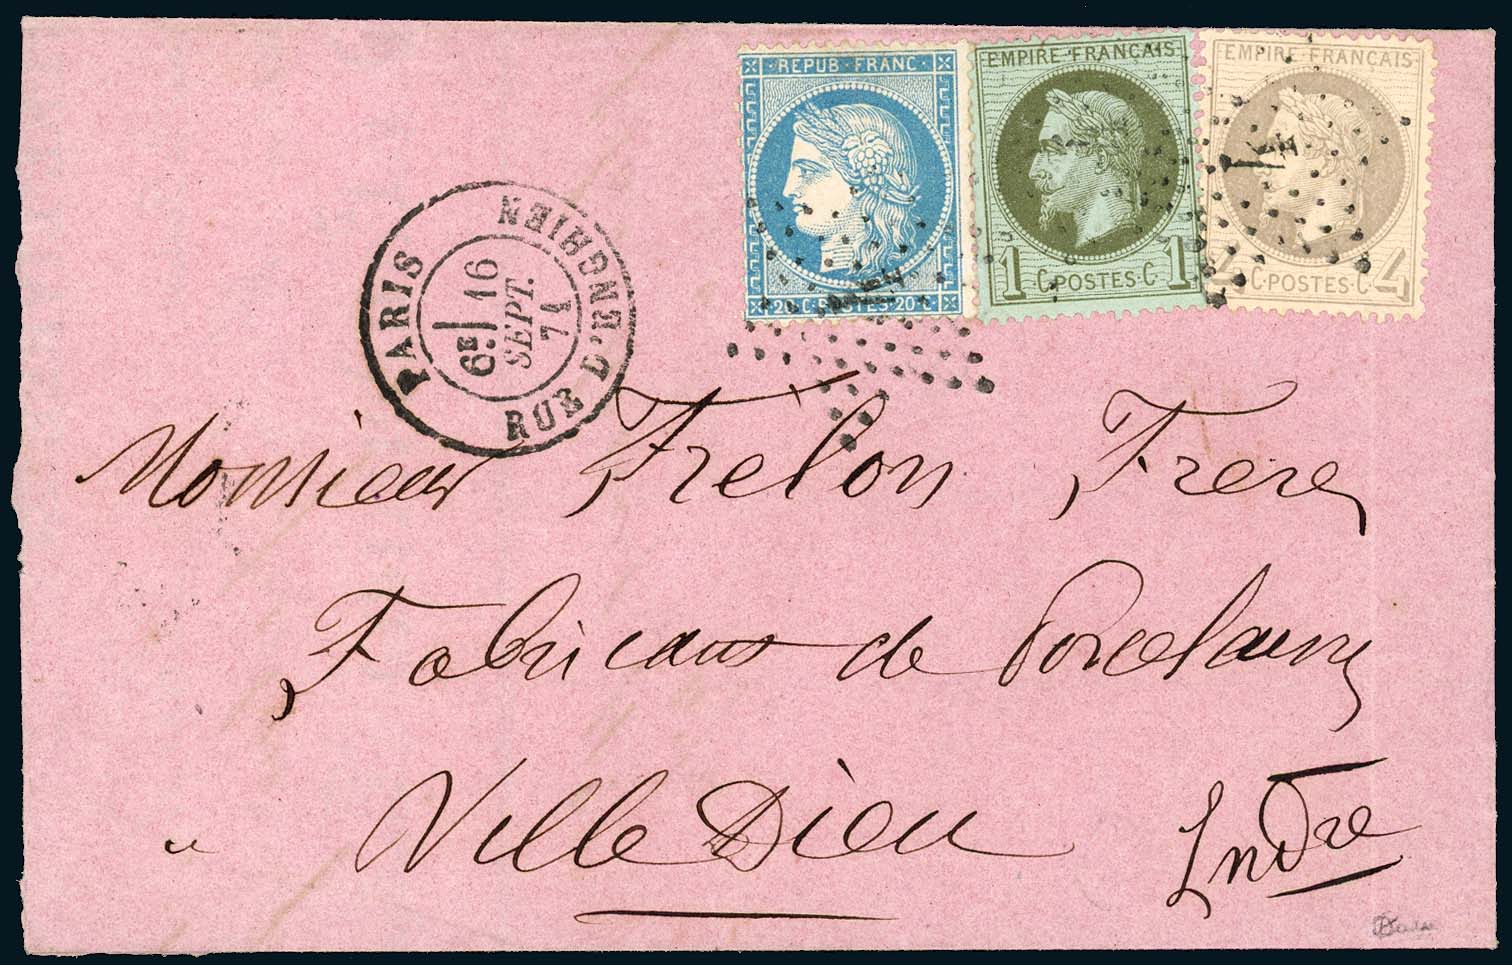 REPUB · FRANC ·
20 · C · POSTES · 20 · C
EMPIRE FRANÇAIS
1 C · POSTES · C 1
EMPIRE FRANÇAIS
4 C · POSTES · C 4
4
4
PARIS RUE D'ENGHIEN
6E 16
SEPT.
71
Monsieur Frelon Frere
Fabricant de Porcelaine
Ville Dieu
Indre